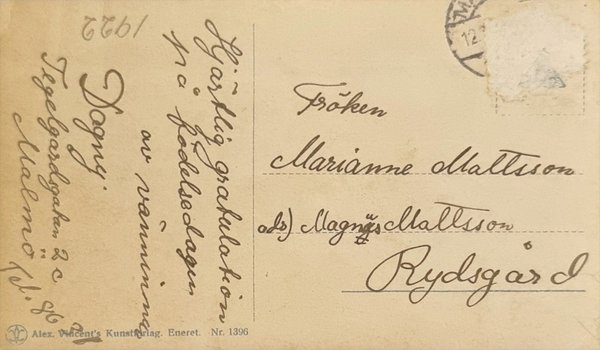 1922
Hjärtlig gratulation
på födelsedagen
av vänninnan
Dagny.
Tegelgårdsgatan 2 c
Malmö
Fröken
Marianne Mattsson
adr) Magnus Mattsson
Rydsgård
Alex. Vincent's Kunstforlag. Eneret. Nr. 1396